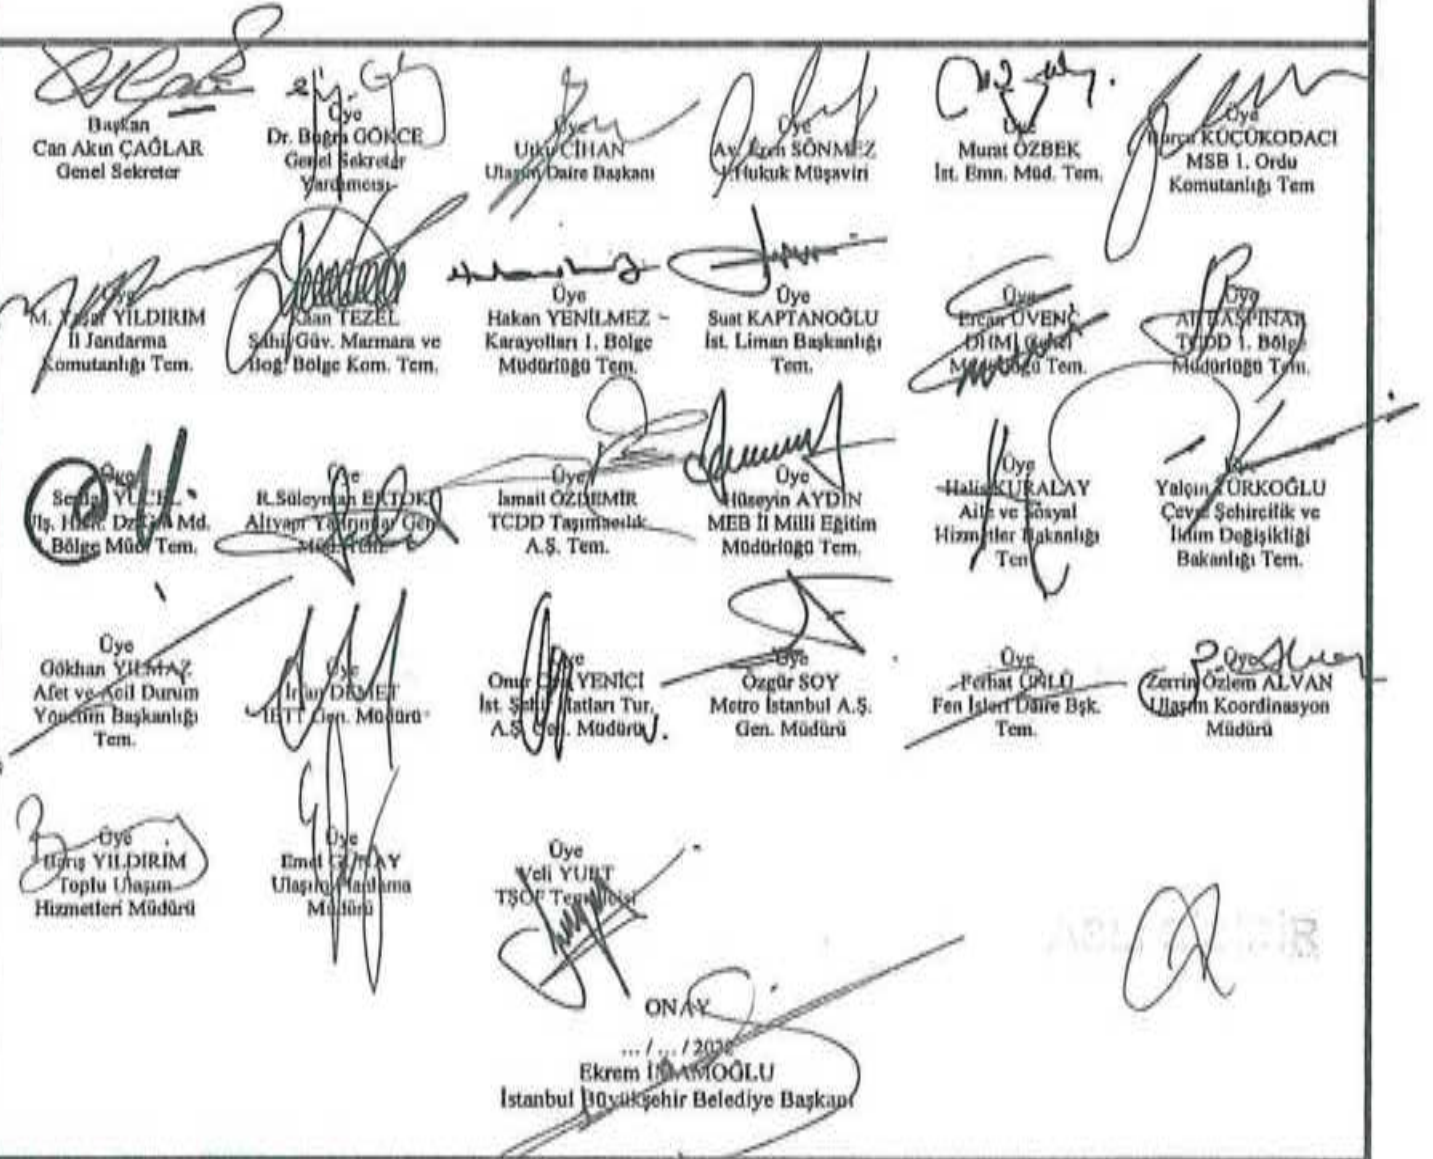 Başkan
Can Akın ÇAĞLAR
Genel Sekreter
Üye
Dr. Buğra GÖKCE
Genel Sekreter
Yardımcısı
Üye
Utku CİHAN
Ulaşım Daire Başkanı
Üye
Av. Eren SÖNMEZ
1.Hukuk Müşaviri
Üye
Murat ÖZBEK
İst. Emn. Müd. Tem.
Üye
KÜÇÜKODACI
MSB 1. Ordu
Komutanlığı Tem
Üye
M. Yaşar YILDIRIM
İl Jandarma
Komutanlığı Tem.
TEZEL
Sahil Güv. Marmara ve
Boğ. Bölge Kom. Tem.
Üye
Hakan YENİLMEZ
Karayolları 1. Bölge
Müdürlüğü Tem.
Üye
Suat KAPTANOĞLU
İst. Liman Başkanlığı
Tem.
Üye
Ercan ÜVENÇ
DHMİ
Tem.
Üye
Ali BAŞPINAR
TCDD 1. Bölge
Müdürlüğü Tem.
Üye
YÜCEL
Md.
Bölge Müd. Tem.
R.Süleyman ERTOK
Altyapı Yatırımlar Gen
Üye
İsmail ÖZDEMİR
TCDD Taşımacılık
A.Ş. Tem.
Üye
Hüseyin AYDIN
MEB İl Milli Eğitim
Müdürlüğü Tem.
Üye
Halis KURALAY
Aile ve Sosyal
Hizmetler Bakanlığı
Tem
Yalçın TÜRKOĞLU
Çevre Şehircilik ve
İklim Değişikliği
Bakanlığı Tem.
Üye
Gökhan YILMAZ
Afet ve Acil Durum
Yönetim Başkanlığı
Tem.
Üye
İrfan DEMET
İETT Gen. Müdürü
Üye
Onur YENİCİ
İst. Şehir Hatları Tur.
A.Ş. Gen. Müdürü
Üye
Özgür SOY
Metro İstanbul A.Ş.
Gen. Müdürü
Üye
Ferhat ÜNLÜ
Fen İşleri Daire Bşk.
Tem.
Üye
Zerrin Özlem ALVAN
Ulaşım Koordinasyon
Müdürü
Üye
Barış YILDIRIM
Toplu Ulaşım
Hizmetleri Müdürü
Üye
Emel
Ulaşım Planlama
Müdürü
Üye
Veli YURT
TŞOF Temsilcisi
ONAY
... / ... / 2022
Ekrem İMAMOĞLU
İstanbul Büyükşehir Belediye Başkanı